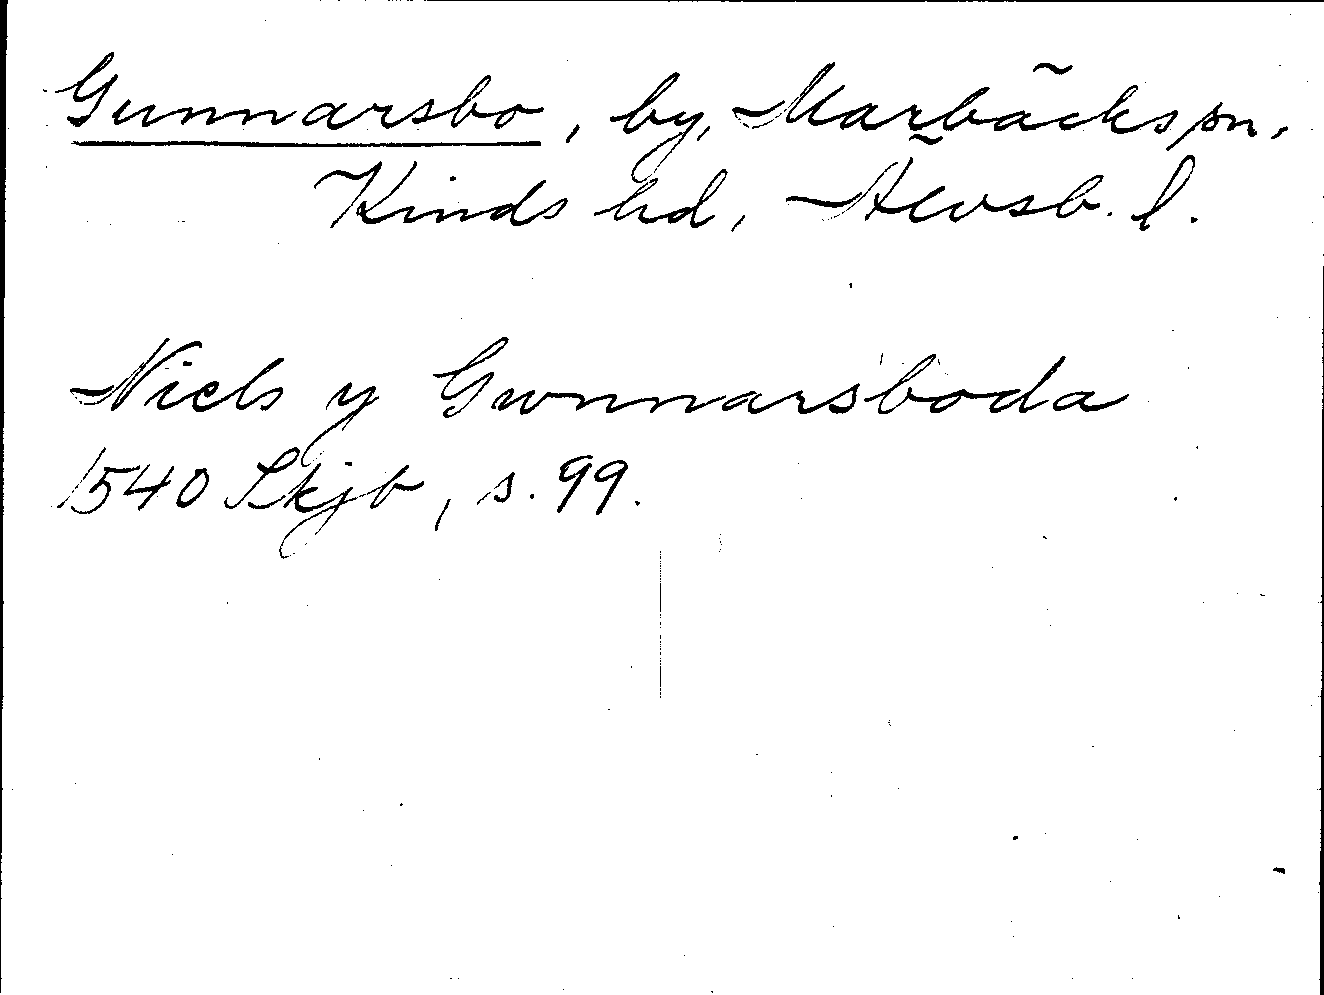 Gunnarsbo, by, Marbäcks sn,
Kinds hd, Älvsb. l.
Niels y Gwnnarsboda
1540 Skjb, s. 99.